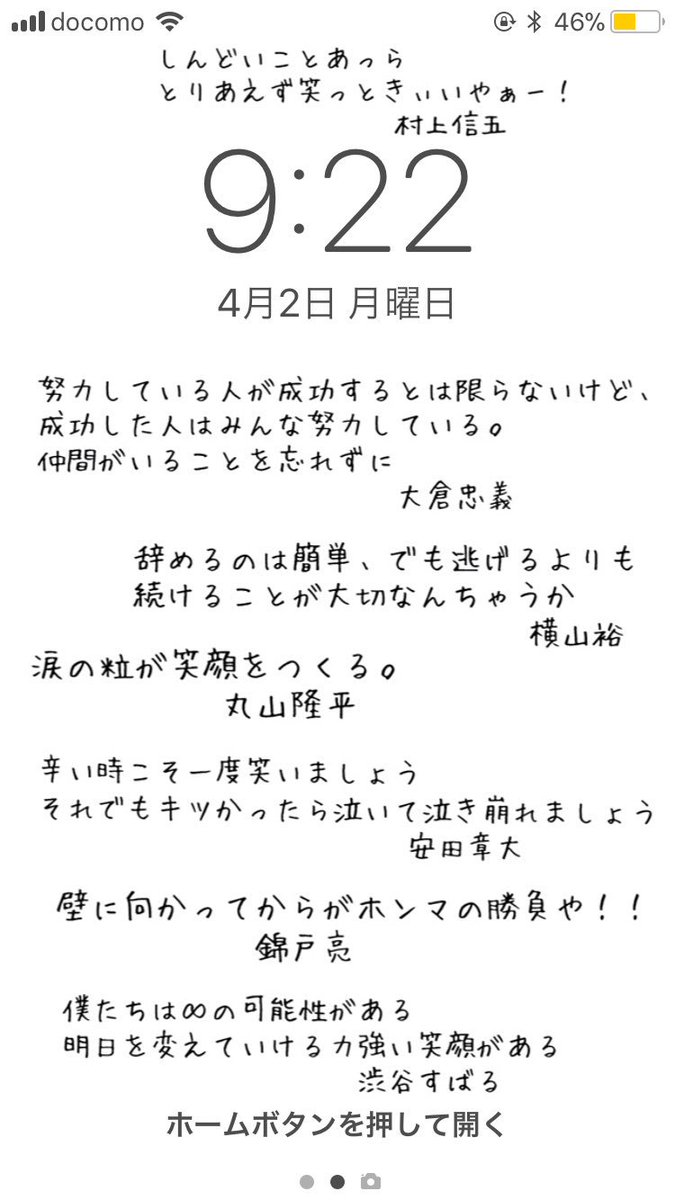 docomo 46%
しんどいことあっら
とりあえず笑っときぃいいやぁー!
村上信五
9:22
4月2日 月曜日
努力している人が成功するとは限らないけど、
成功した人はみんな努力している。
仲間がいることを忘れずに
大倉忠義
辞めるのは簡単、でも逃げるよりも
続けることが大切なんちゃうか
横山裕
涙の粒が笑顔をつくる。
丸山隆平
辛い時こそ一度笑いましょう
それでもキツかったら泣いて泣き崩れましょう
安田章大
壁に向かってからがホンマの勝負や!!
錦戸亮
僕たちは∞の可能性がある
明日を変えていける力強い笑顔がある
渋谷すばる
ホームボタンを押して開く